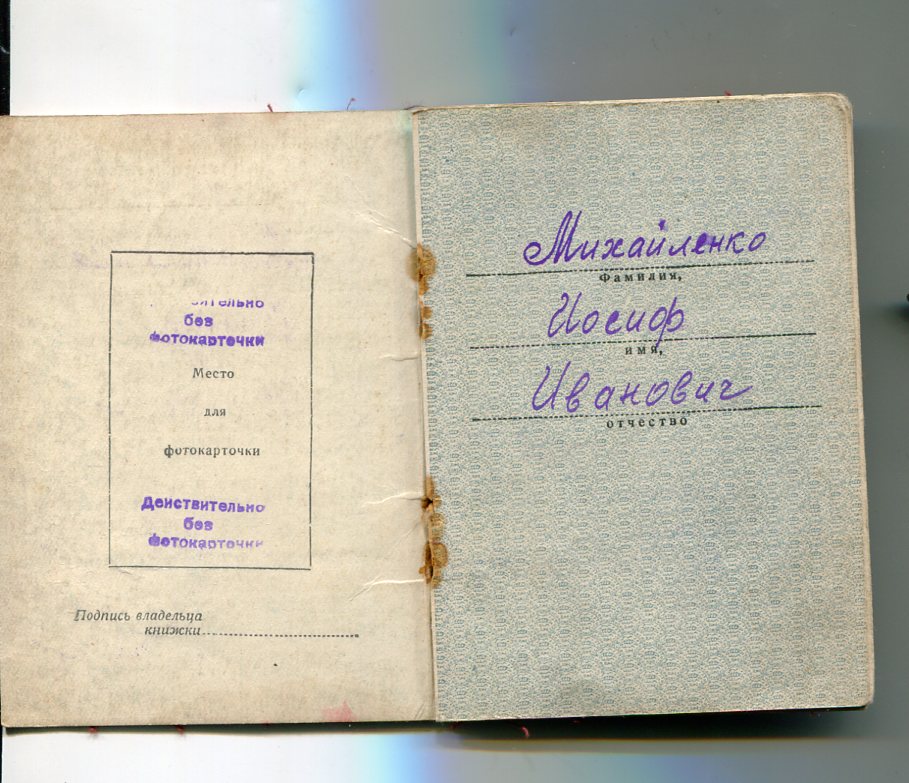 без
фотокарточки
Место
для
фотокарточки
Действительно
без
фотокарточки
Подпись владельца
книжки
Михайленко
Фамилия,
Иосиф
имя,
Иванович
отчество